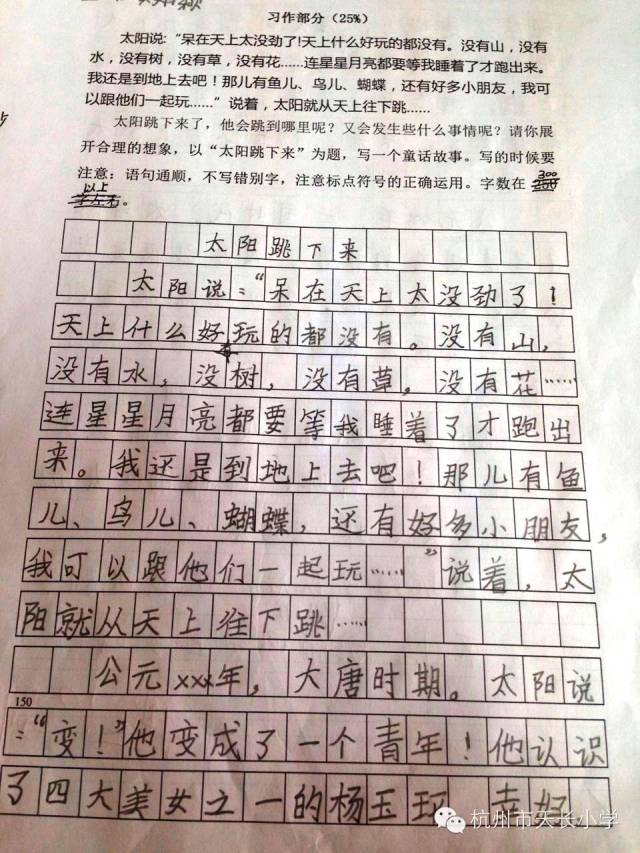 习作部分（25%）
太阳说:“呆在天上太没劲了!天上什么好玩的都没有。没有山，没有
水，没有树，没有草，没有花……连星星月亮都要等我睡着了才跑出来。
我还是到地上去吧！那儿有鱼儿、鸟儿、蝴蝶，还有好多小朋友，我可
以跟他们一起玩……”说着，太阳就从天上往下跳……
太阳跳下来了，他会跳到哪里呢？又会发生些什么事情呢？请你展
开合理的想象，以“太阳跳下来”为题，写一个童话故事。写的时候要
注意：语句通顺，不写错别字，注意标点符号的正确运用。字数在 300
以上。
太阳跳下来
太阳说：“呆在天上太没劲了！
天上什么好玩的都没有。没有山，
没有水，没有树，没有草，没有花……
连星星月亮都要等我睡着了才跑出
来。我还是到地上去吧！那儿有鱼
儿、鸟儿、蝴蝶，还有好多小朋友，
我可以跟他们一起玩……”说着，太
阳就从天上往下跳……
公元xxx年，大唐时期。太阳说
150
：“变！”他变成了一个青年！他认识
了四大美女之一的杨玉环，幸好
杭州市天长小学